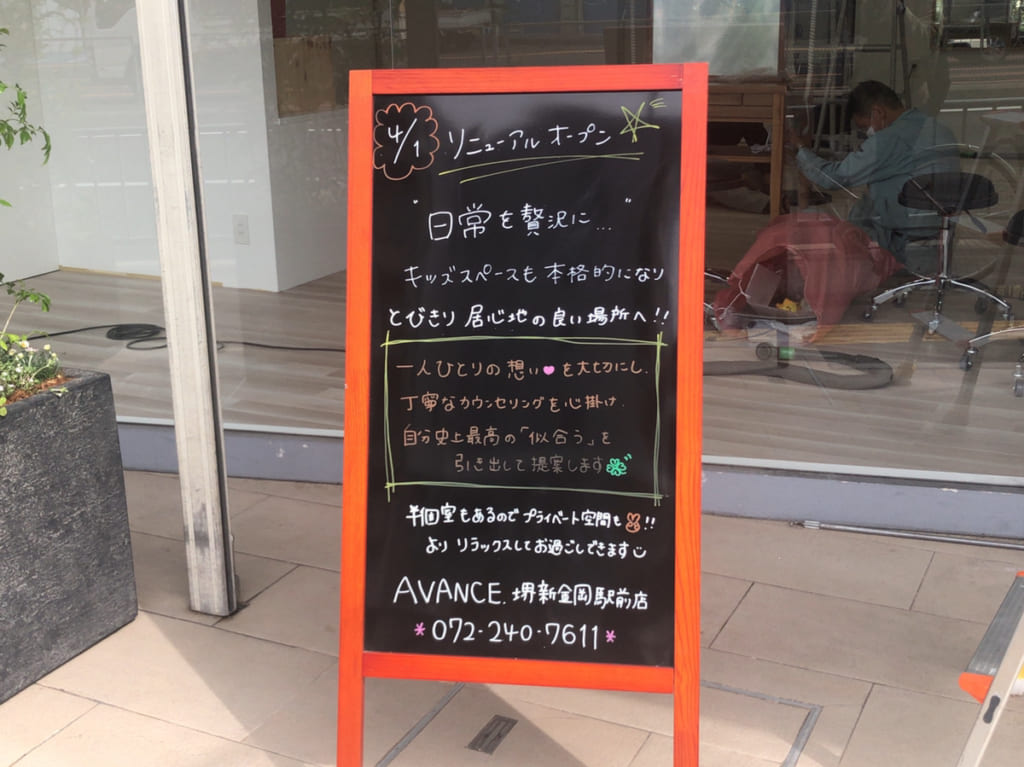 4/1 リニューアルオープン
"日常を贅沢に…"
キッズスペースも本格的になり
とびきり居心地の良い場所へ!!
一人ひとりの想い♥を大切にし、
丁寧なカウンセリングを心掛け、
自分史上最高の「似合う」を
引き出して提案します
半個室もあるのでプライベート空間も!!
よりリラックスしてお過ごしできます
AVANCE.堺新金岡駅前店
*072-240-7611*